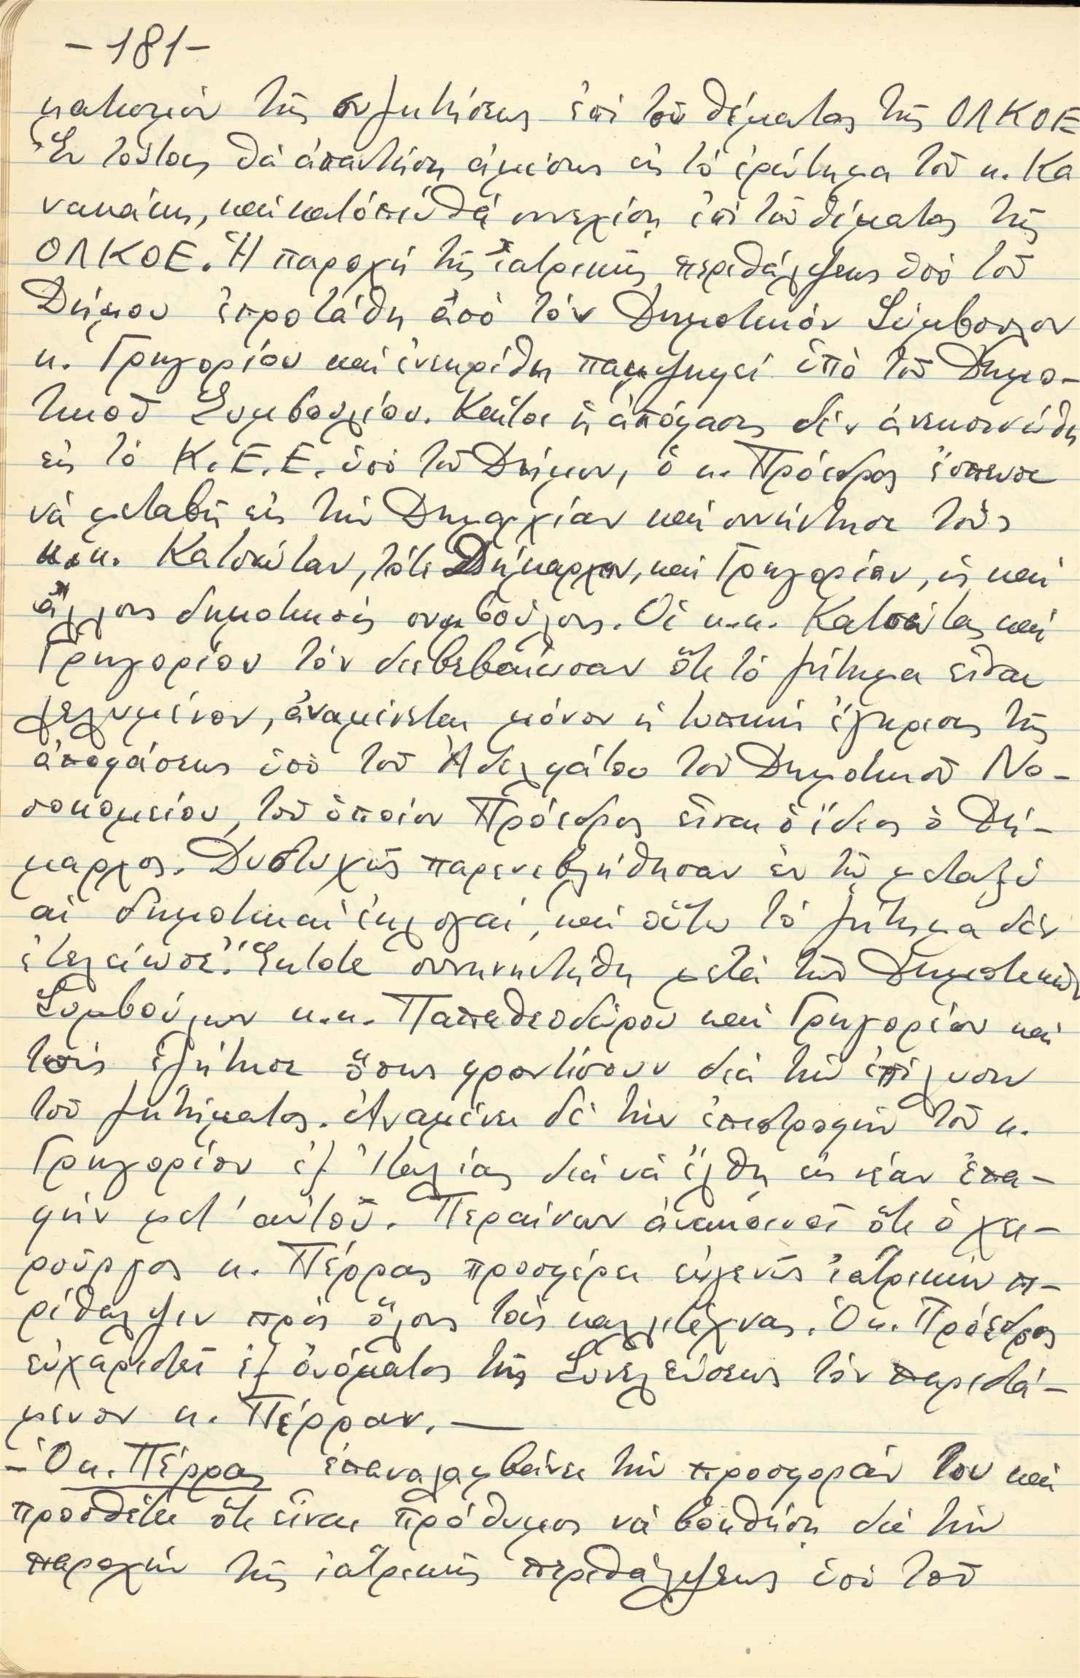 -181-
ματισμόν τῆς συζητήσεως ἐπί τοῦ θέματος τῆς ΟΛΚΟΕ
Ἐν τούτοις θά ἀπαντήση ἀμέσως εἰς τό ἐρώτημα τοῦ κ. Κα
νακάκη, καί κατόπιν θά συνεχίση ἐπί τοῦ θέματος τῆς
ΟΛΚΟΕ. Ἡ παροχή τῆς ἰατρικῆς περιθάλψεως ὑπό τοῦ
Δήμου ἐπροτάθη ἀπό τόν Δημοτικόν Σύμβουλον
κ. Γρηγορίου καί ἐνεκρίθη παμψηφεί ὑπό τοῦ Δημο-
τικοῦ Συμβουλίου. Καίτοι ἡ ἀπόφασις δέν ἀνεκοινώθη
εἰς τό Κ.Ε.Ε. ὑπό τοῦ Δήμου, ὁ κ. Πρόεδρος ἔσπευσε
νά μεταβῆ εἰς τήν Δημαρχίαν καί συνήντησε τούς
κ.κ. Κατσώταν, τότε Δήμαρχον, καί Γρηγορίου, ὡς καί
ἄλλους δημοτικούς συμβούλους. Οἱ κ.κ. Κατσώτας καί
Γρηγορίου τόν διεβεβαίωσαν ὅτι τό ζήτημα εἶναι
λελυμένον, ἀναμένεται μόνον ἡ τυπική ἔγκρισις τῆς
ἀποφάσεως ὑπό τοῦ Ἀδελφάτου τοῦ Δημοτικοῦ Νο-
σοκομείου, τοῦ ὁποίου Πρόεδρος εἶναι ὁ ἴδιος ὁ Δή-
μαρχος. Δυστυχῶς παρενεβλήθησαν ἐν τῶ μεταξύ
αἱ δημοτικαί ἐκλογαί, καί οὕτω τό ζήτημα δέν
ἐτελείωσε. Ἔκτοτε συνηντήθη μετά τῶν Δημοτικῶν
Συμβούλων κ.κ. Παπαθεοδώρου καί Γρηγορίου καί
τούς ἐζήτησε ὅπως φροντίσουν διά τήν ἐπίλυσιν
τοῦ ζητήματος. Ἀναμένει δέ τήν ἐπιστροφήν τοῦ κ.
Γρηγορίου ἐξ Ἰταλίας διά νά ἔλθη εἰς νέαν ἐπα-
φήν μετ' αὐτοῦ. Περαίνων ἀνακοινοῖ ὅτι ὁ χει-
ροῦργος κ. Πέρρας προσφέρει εὐγενῶς ἰατρικήν πε-
ρίθαλψιν πρός ὅλους τούς καλλιτέχνας. Ὁ κ. Πρόεδρος
εὐχαριστεῖ ἐξ ὀνόματος τῆς Συνελεύσεως τόν παριστά-
μενον κ. Πέρραν. —
- Ὁ κ. Πέρρας ἐπαναλαμβάνει τήν προσφοράν του καί
προσθέτει ὅτι εἶναι πρόθυμος νά βοηθήση διά τήν
παροχήν τῆς ἰατρικῆς περιθάλψεως ὑπό τοῦ